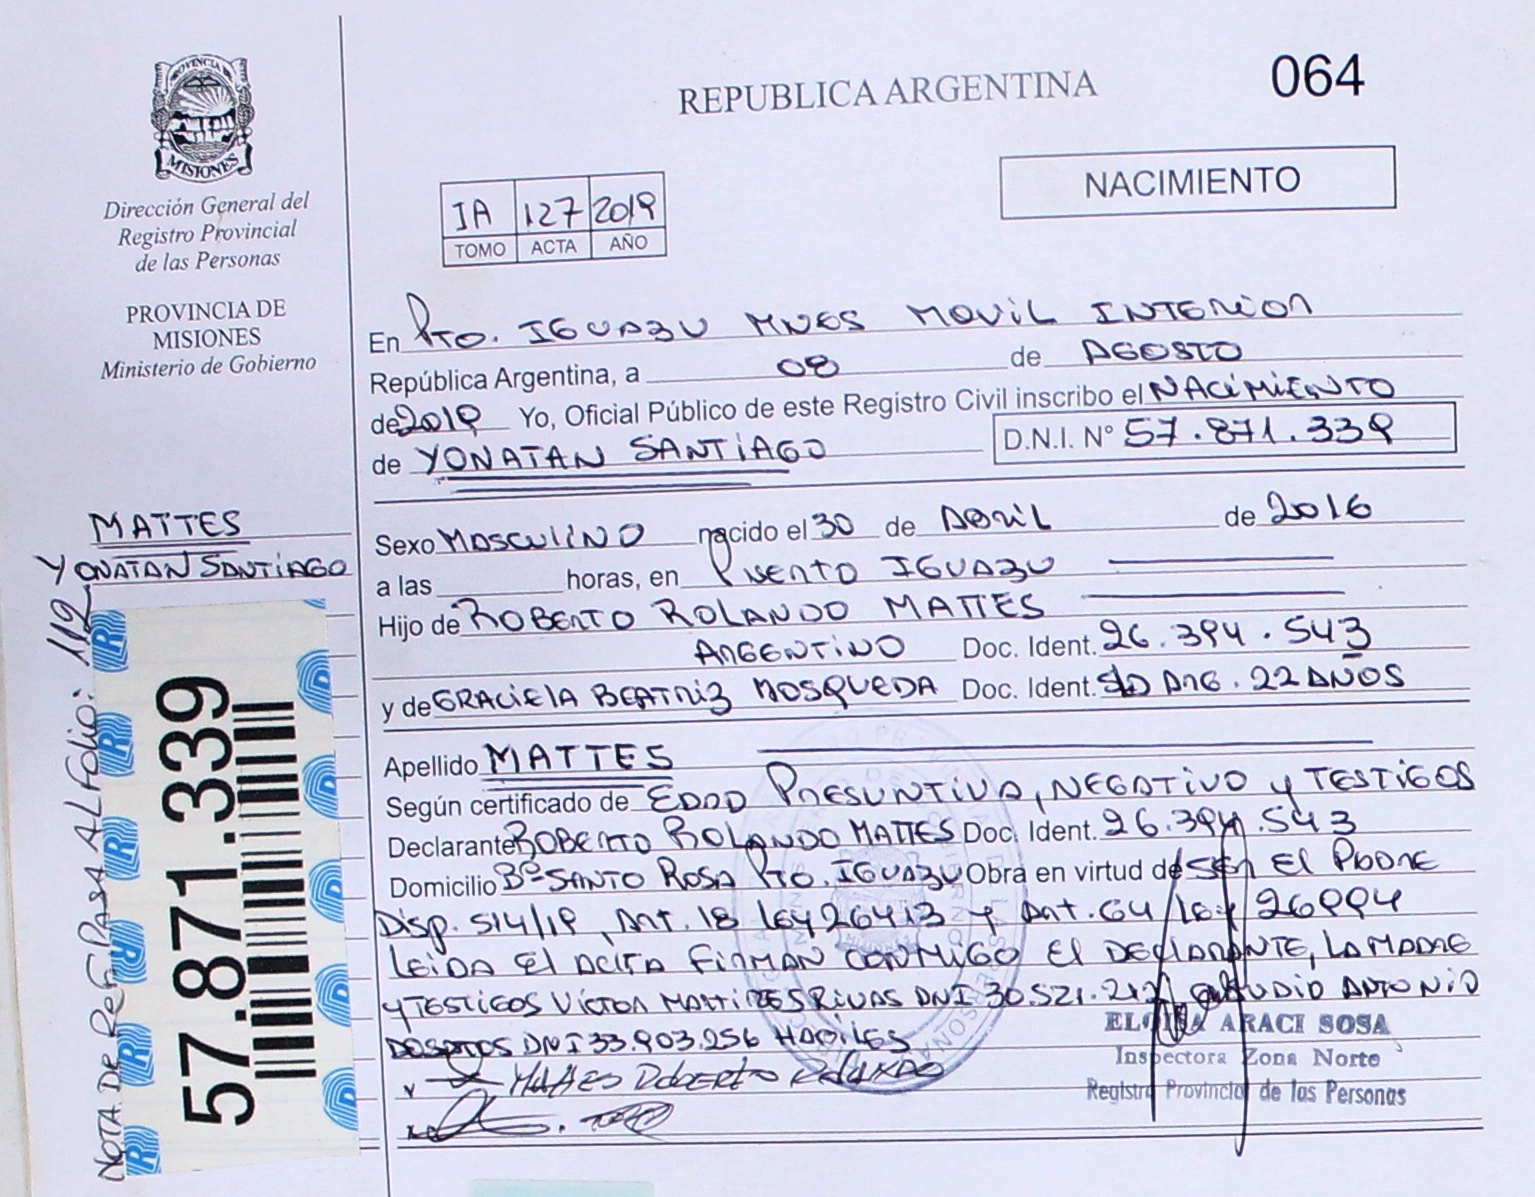 PROVINCIA DE
MISIONES
Dirección General del
Registro Provincial
de las Personas
PROVINCIA DE
MISIONES
Ministerio de Gobierno
REPUBLICA ARGENTINA
064
NACIMIENTO
IA 127 2019
TOMO ACTA AÑO
En Pto. IGUAZU MNES MOVIL INTERIOR
República Argentina, a 08 de AGOSTO
de 2019 Yo, Oficial Público de este Registro Civil inscribo el NACIMIENTO
de YONATAN SANTIAGO D.N.I. N° 57.871.339
MATTES
YONATAN SANTIAGO
Sexo MASCULINO nacido el 30 de ABRIL de 2016
a las horas, en PUERTO IGUAZU
Hijo de ROBERTO ROLANDO MATTES
ARGENTINO Doc. Ident. 26.394.543
y de GRACIELA BEATRIZ MOSQUEDA Doc. Ident. S/D ARG. 22 AÑOS
Apellido MATTES
Según certificado de EDAD PRESUNTIVA, NEGATIVO y TESTIGOS
Declarante ROBERTO ROLANDO MATTES Doc. Ident. 26.394.543
Domicilio Bº SANTO ROSA PTO. IGUAZU Obra en virtud de SER EL PADRE
Disp. 514/19, ART. 18 LEY 26413 y ART. 64 LEY 26994
LEIDA El ACTA FIRMAN CONMIGO El DECLARANTE, LA MADRE
y TESTIGOS VICTOR RIVAS DNI 30.521. CLAUDIO ANTONIO
DNI 33.903.256 HABILES
ELOISA ARACI SOSA
Inspectora Zona Norte
Registro Provincial de las Personas
MATTES ROBERTO ROLANDO
NOTA DE REF. PASA AL FOLIO: 119
57.871.339